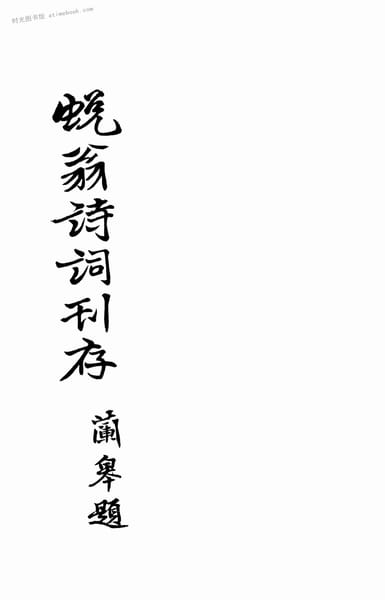 时光图书馆 atimebook.com
蜕翁詩詞刊存
蘭皋題